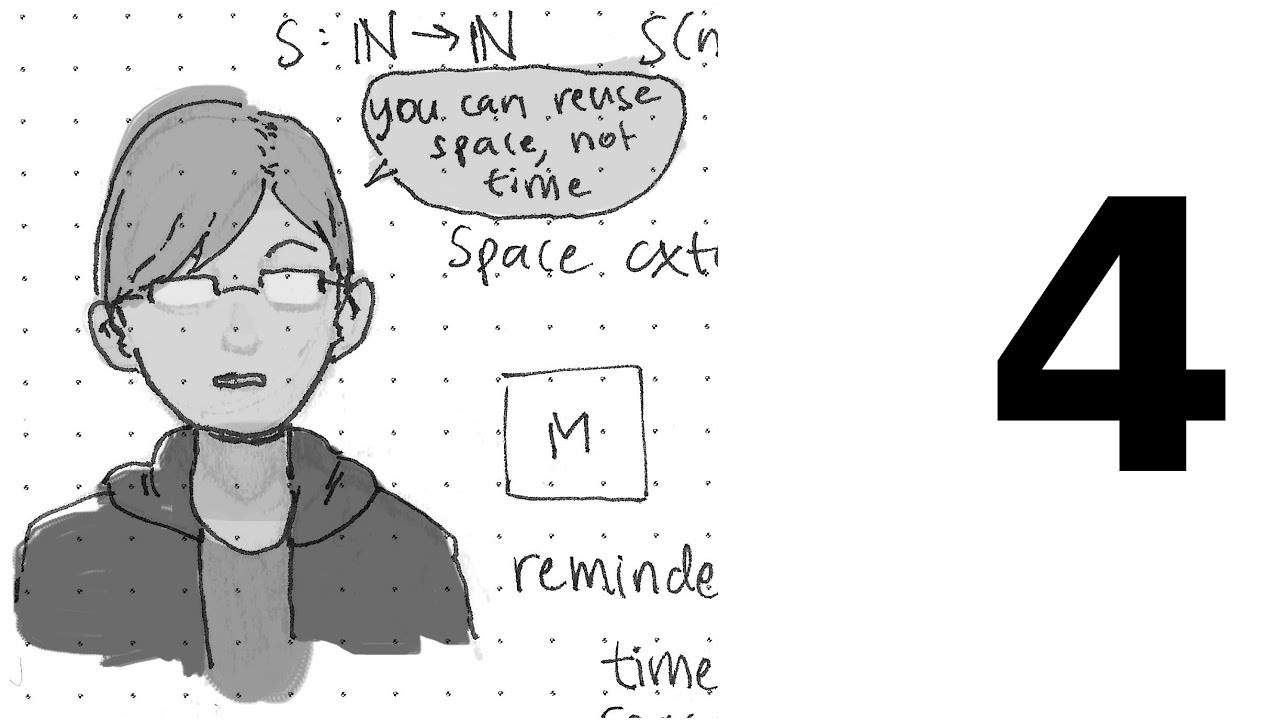 S : ℕ → ℕ S(n
you can reuse
space, not
time
Space cxt
M
reminde
time
4